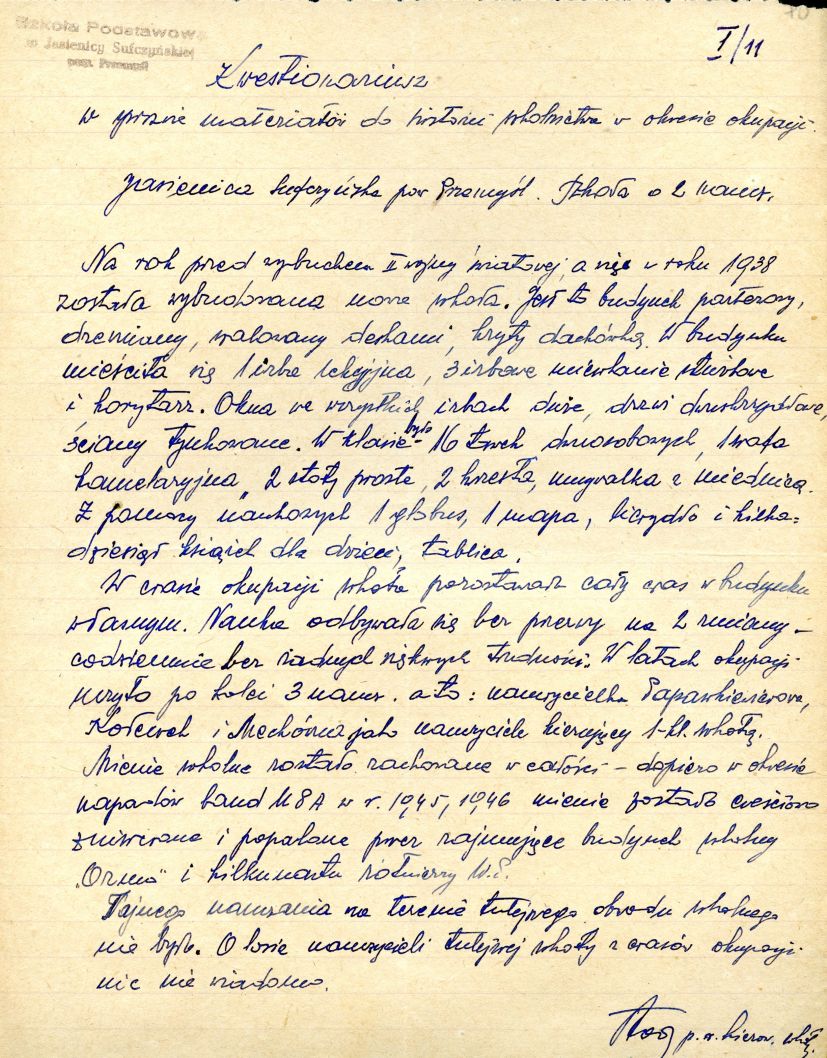 10
Szkoła Podstawowa
w Jasienicy Sufczyńskiej
pow. Przemyśl
I/11
Kwestionariusz
w sprawie materiałów do historii szkolnictwa w okresie okupacji.
Jasienica Sufczyńska pow. Przemyśl. Szkoła o 2 naucz.
Na rok przed wybuchem II wojny światowej, a więc w roku 1938
została wybudowana nowa szkoła. Jest to budynek parterowy,
drewniany, szalowany deskami, kryty dachówką. W budynku
mieściła się 1 izba lekcyjna, 3 izbowe mieszkanie służbowe
i korytarz. Okna we wszystkich izbach duże, drzwi dwuskrzydłowe,
ściany tynkowane. W klasie było 16 ławek dwuosobowych, 1 szafa
kancelaryjna, 2 stoły proste, 2 krzesła, umywalka z miednicą.
Z pomocy naukowych 1 globus, 1 mapa, liczydło i kilka=
dziesiąt książek dla dzieci, tablica.
W czasie okupacji szkoła pozostawała cały czas w budynku
własnym. Nauka odbywała się bez przerwy na 2 zmiany –
codziennie bez żadnych większych trudności. W latach okupacji
uczyło po kolei 3 naucz. a to: nauczycielka
i Mechówna jako nauczyciele kierujący 1-kl. szkołą.
Mienie szkolne zostało zachowane w całości – dopiero w okresie
napadów band UPA w r. 1945, 1946 mienie zostało częściowo
zniszczone i popalone przez zajmujące budynek szkolny
„Ormo" i kilkunastu żołnierzy W.P.
Tajnego nauczania na terenie tutejszego obwodu szkolnego
nie było. O losie nauczycieli tutejszej szkoły z czasów okupacji
nic nie wiadomo.
p.o. kierow. szkoły